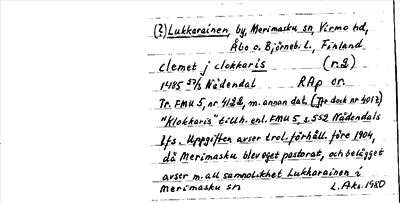 (?) Lukkarainen, by, Merimasku sn, Virmo hd,
Åbo o. Björneb. L., Finland
clemet j clokkaris (r.2)
1485 27/3 Nådendal RAp or.
Tr. FMU 5, nr 4122, m. annan dat. (Jfr dock nr 4017)
"Klokkaris" tillh. enl. FMU 5, s. 552 Nådendals
kfs. Uppgiften avser trol. förhåll. före 1904,
då Merimasku blev eget pastorat, och belägget
avser m. all sannolikhet Lukkarainen i
Merimasku sn L. Aks. 1980